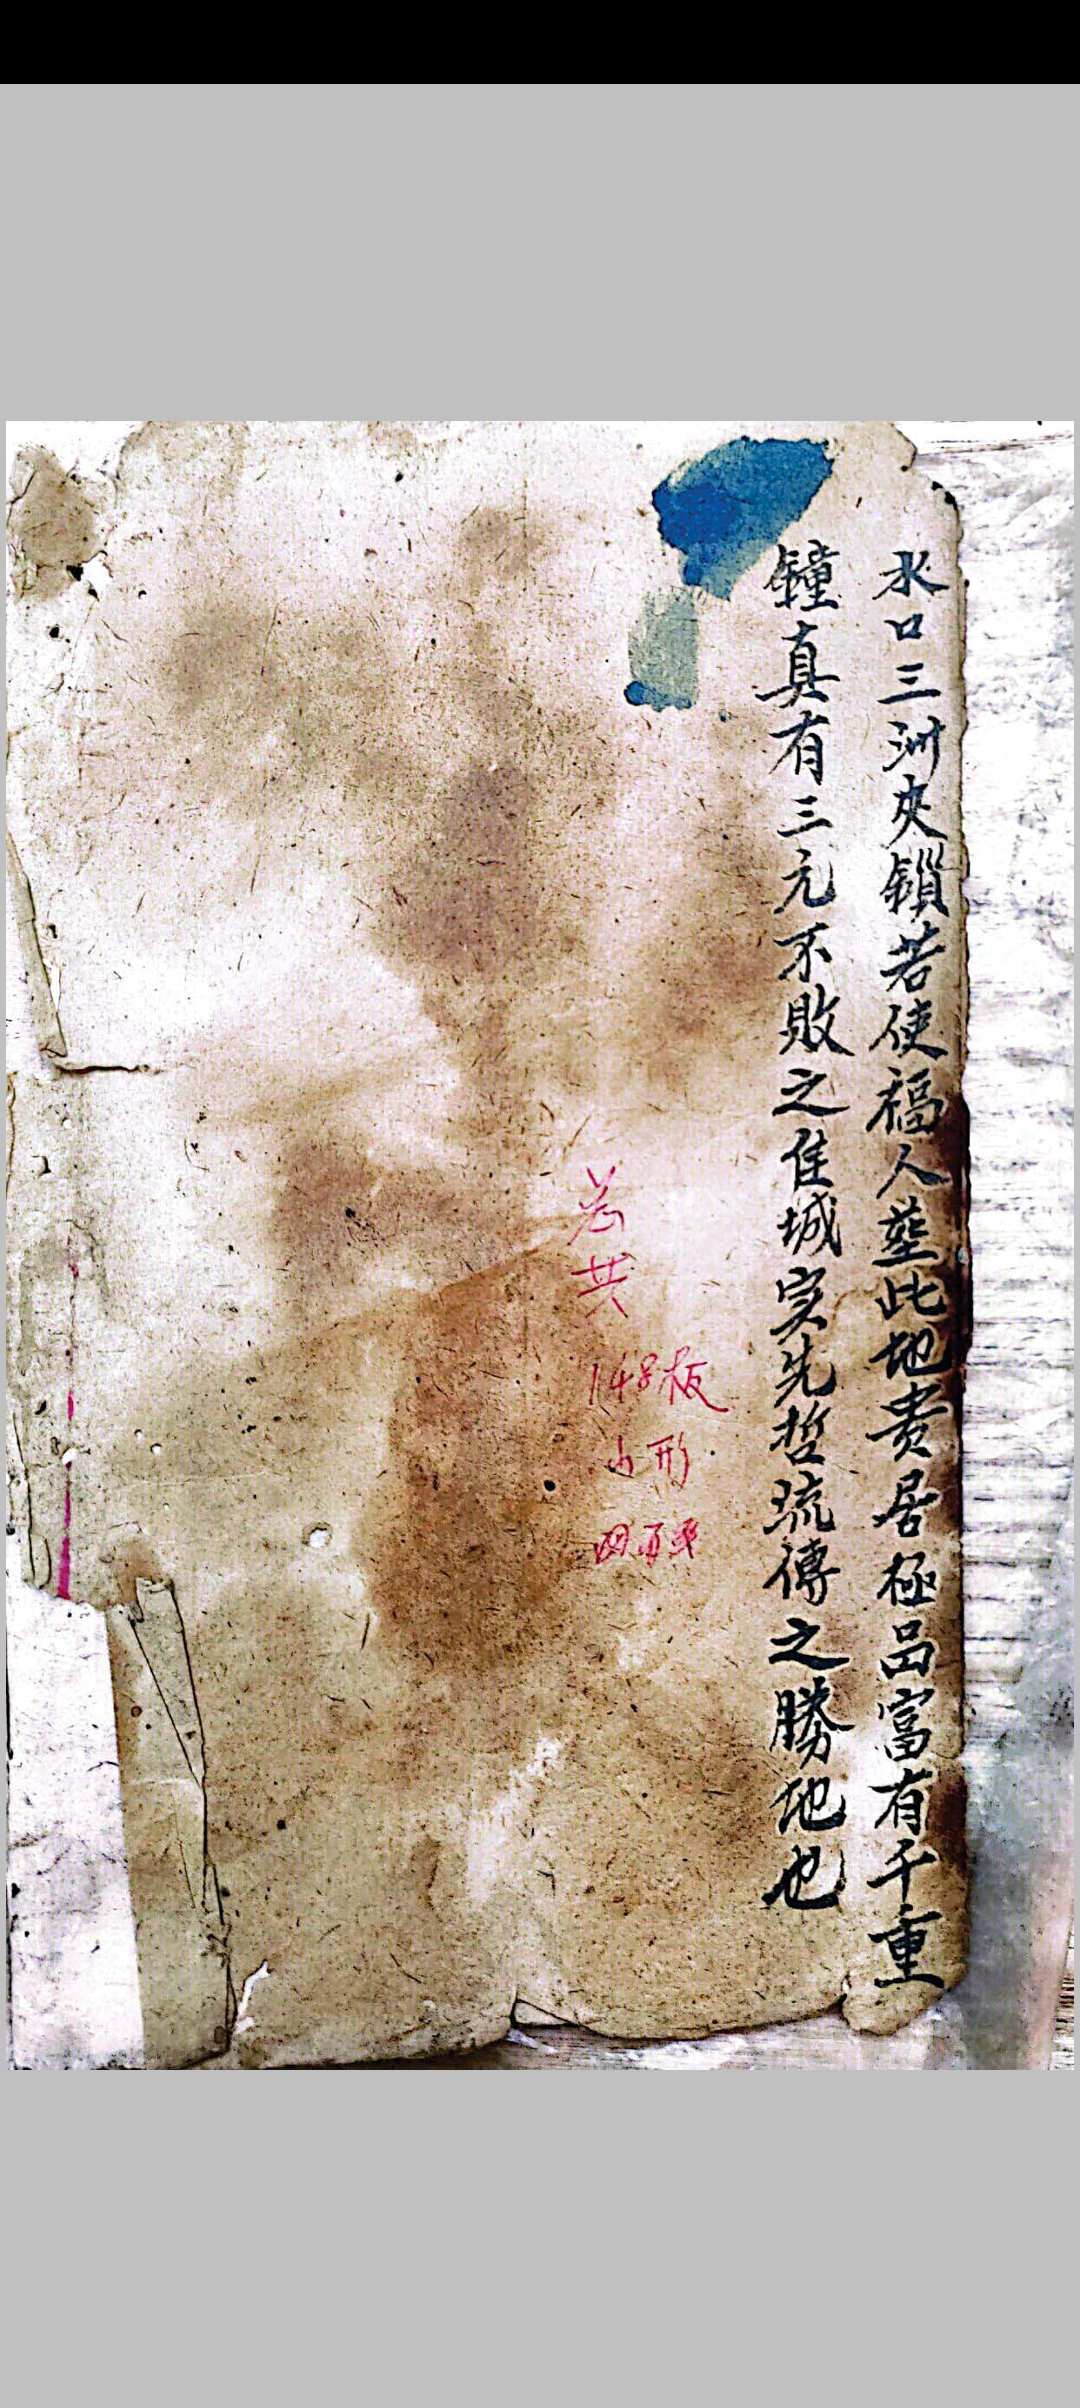 水口三洲夾鎖若使福人塟此地贵居極品富有千重
鐘真有三元不敗之佳城实先哲流傳之勝地也
总共
148板
山形